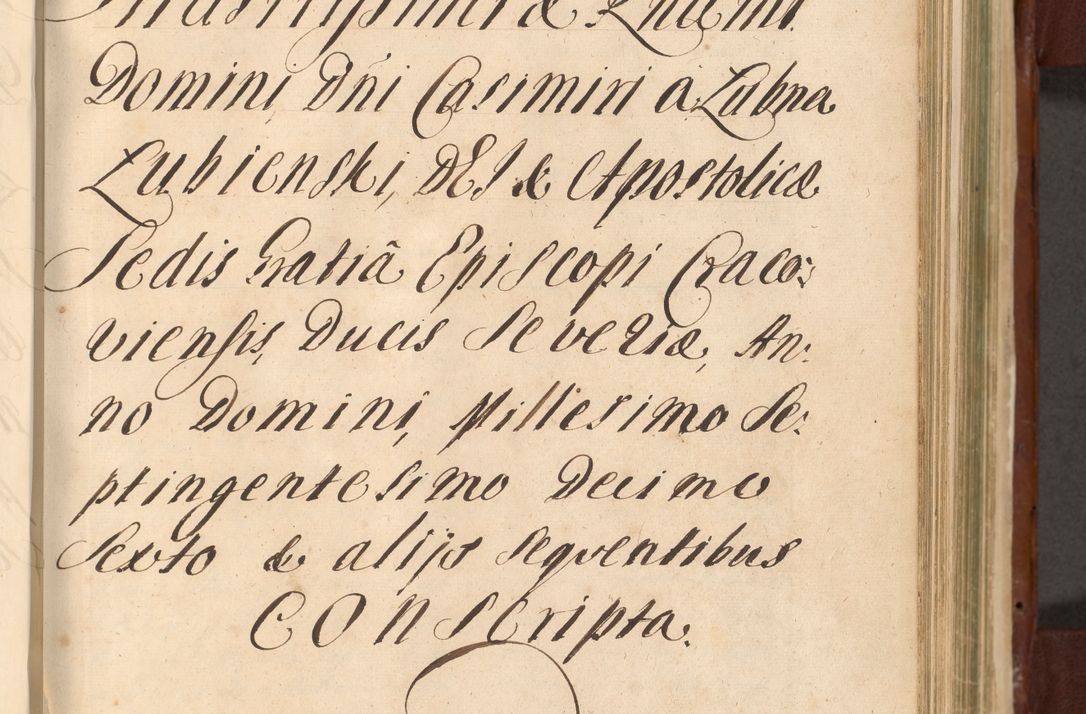 Illustrissimi & Rndmi
Domini Dñi Casimiri à Łubna
Łubienski, DEI & Apostolicæ
Sedis Gratiã Episcopi Craco:
viensis, Ducis Severiæ, An:
no Domini, Millesimo Se:
ptingentesimo Decimo
Sexto & alijs seqventibus
CONscripta.